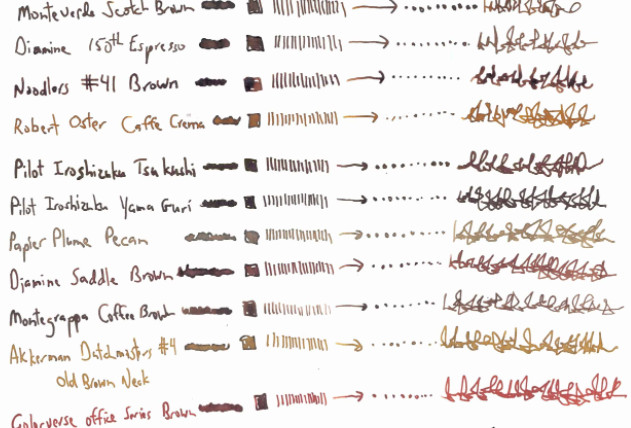 Monteverde Scotch Brown
Diamine 150th Espresso
Noodlers #41 Brown
Robert Oster Caffe Crema
Pilot Iroshizuku Tsukushi
Pilot Iroshizuku Yama Guri
Papier Plume Pecan
Diamine Saddle Brown
Montegrappa Coffee Brown
Akkerman Dutchmasters #4
Old Brown Neck
Colorverse office Series Brown